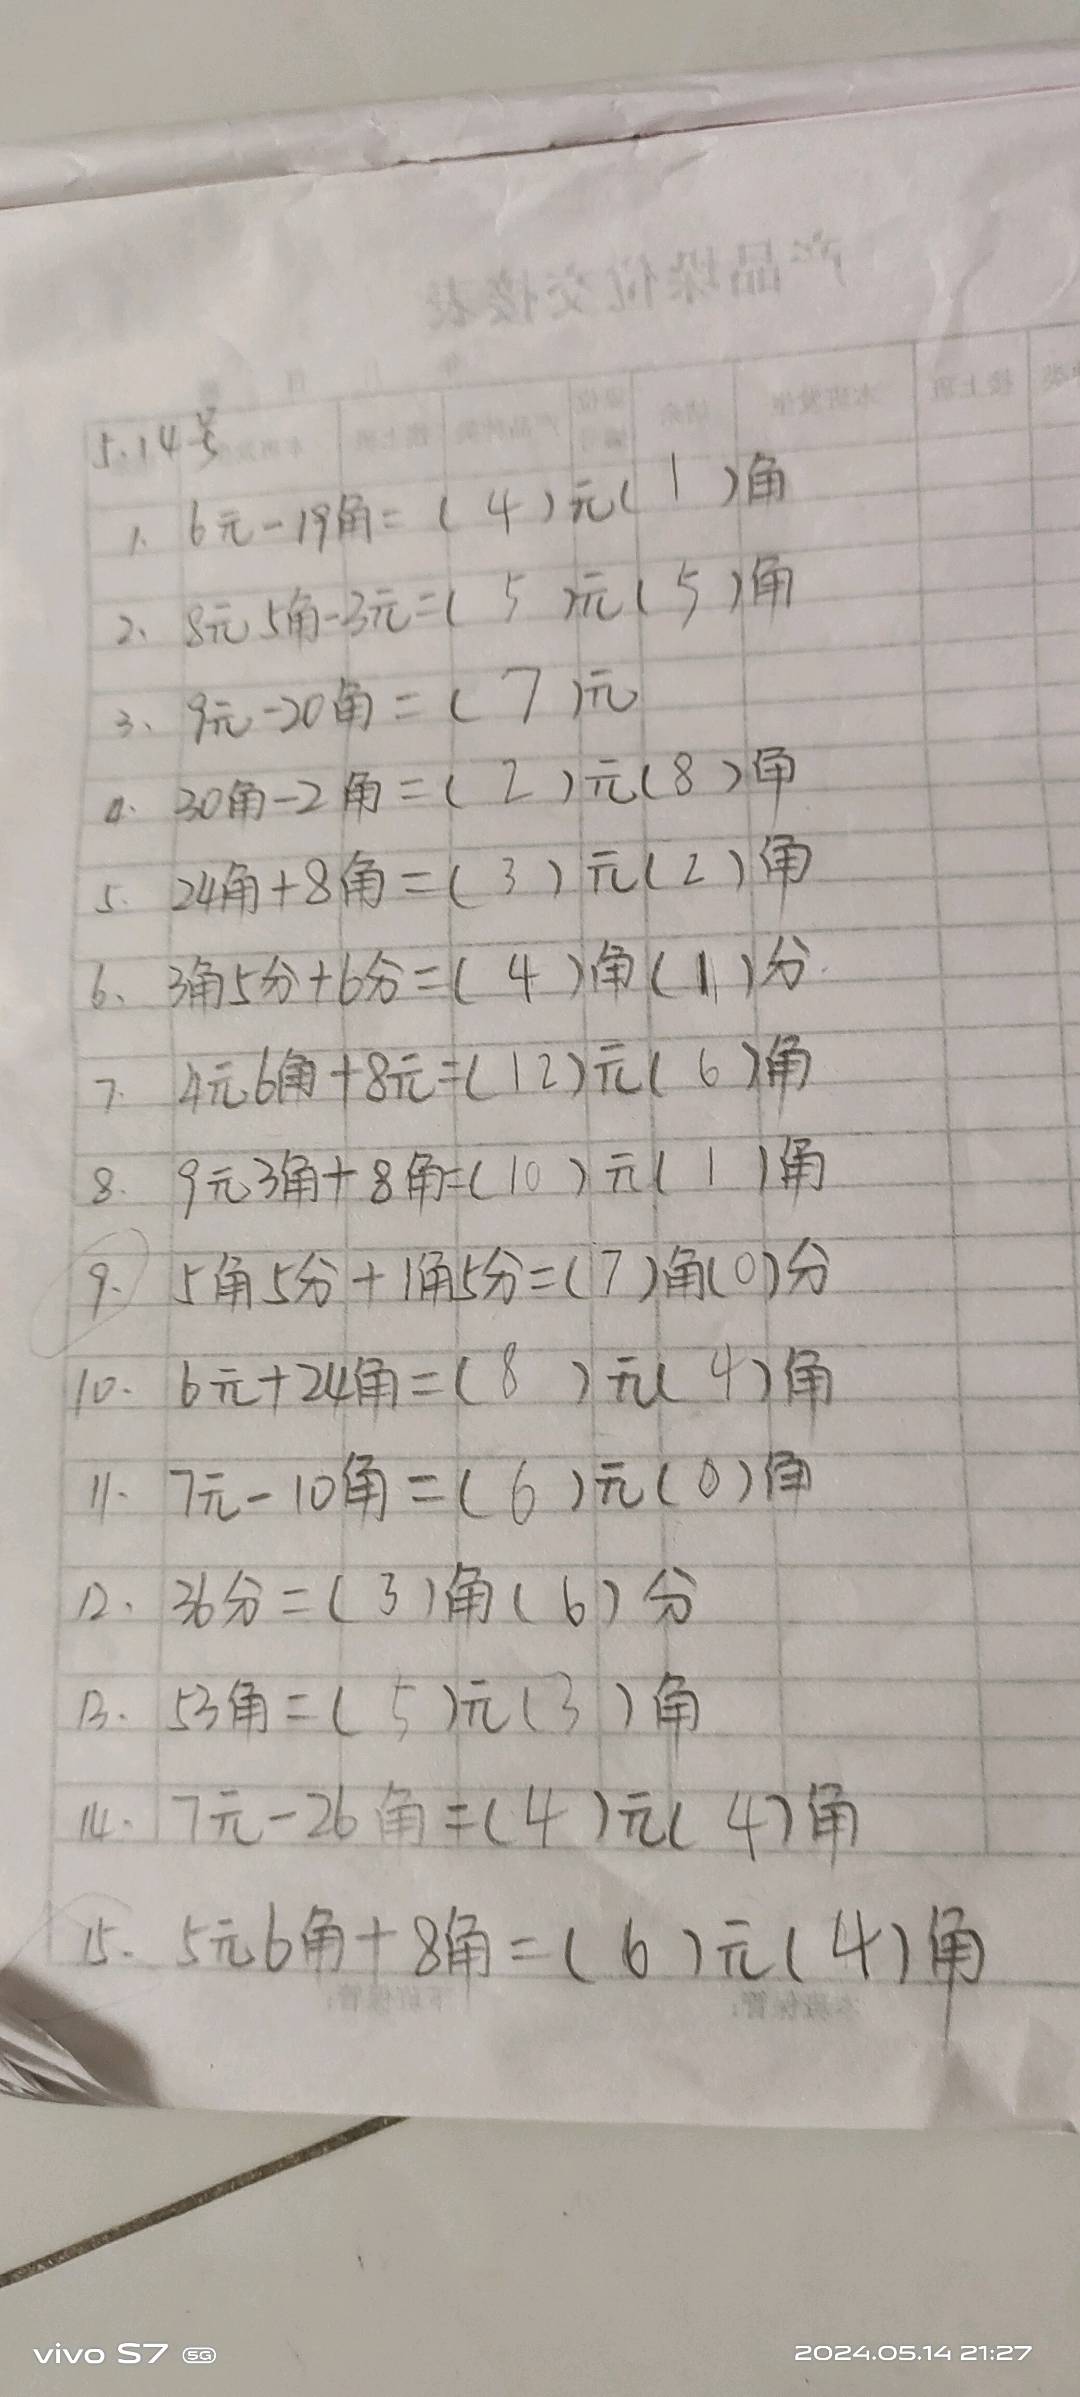 产品垛位交接表
5.14号
1. 6元-19角=(4)元(1)角
2、8元5角-3元=(5)元(5)角
3、9元-20角=(7)元
4. 30角-2角=(2)元(8)角
5. 24角+8角=(3)元(2)角
6、3角5分+6分=(4)角(1)分.
7. 4元6角+8元=(12)元(6)角
8. 9元3角+8角=(10)元(1)角
9. 5角5分+1角5分=(7)角(0)分
10. 6元+24角=(8)元(4)角
11. 7元-10角=(6)元(0)角
12. 36分=(3)角(6)分
13. 53角=(5)元(3)角
14. 7元-26角=(4)元(4)角
15. 5元6角+8角=(6)元(4)角
vivo S7 5G
2024.05.14 21:27